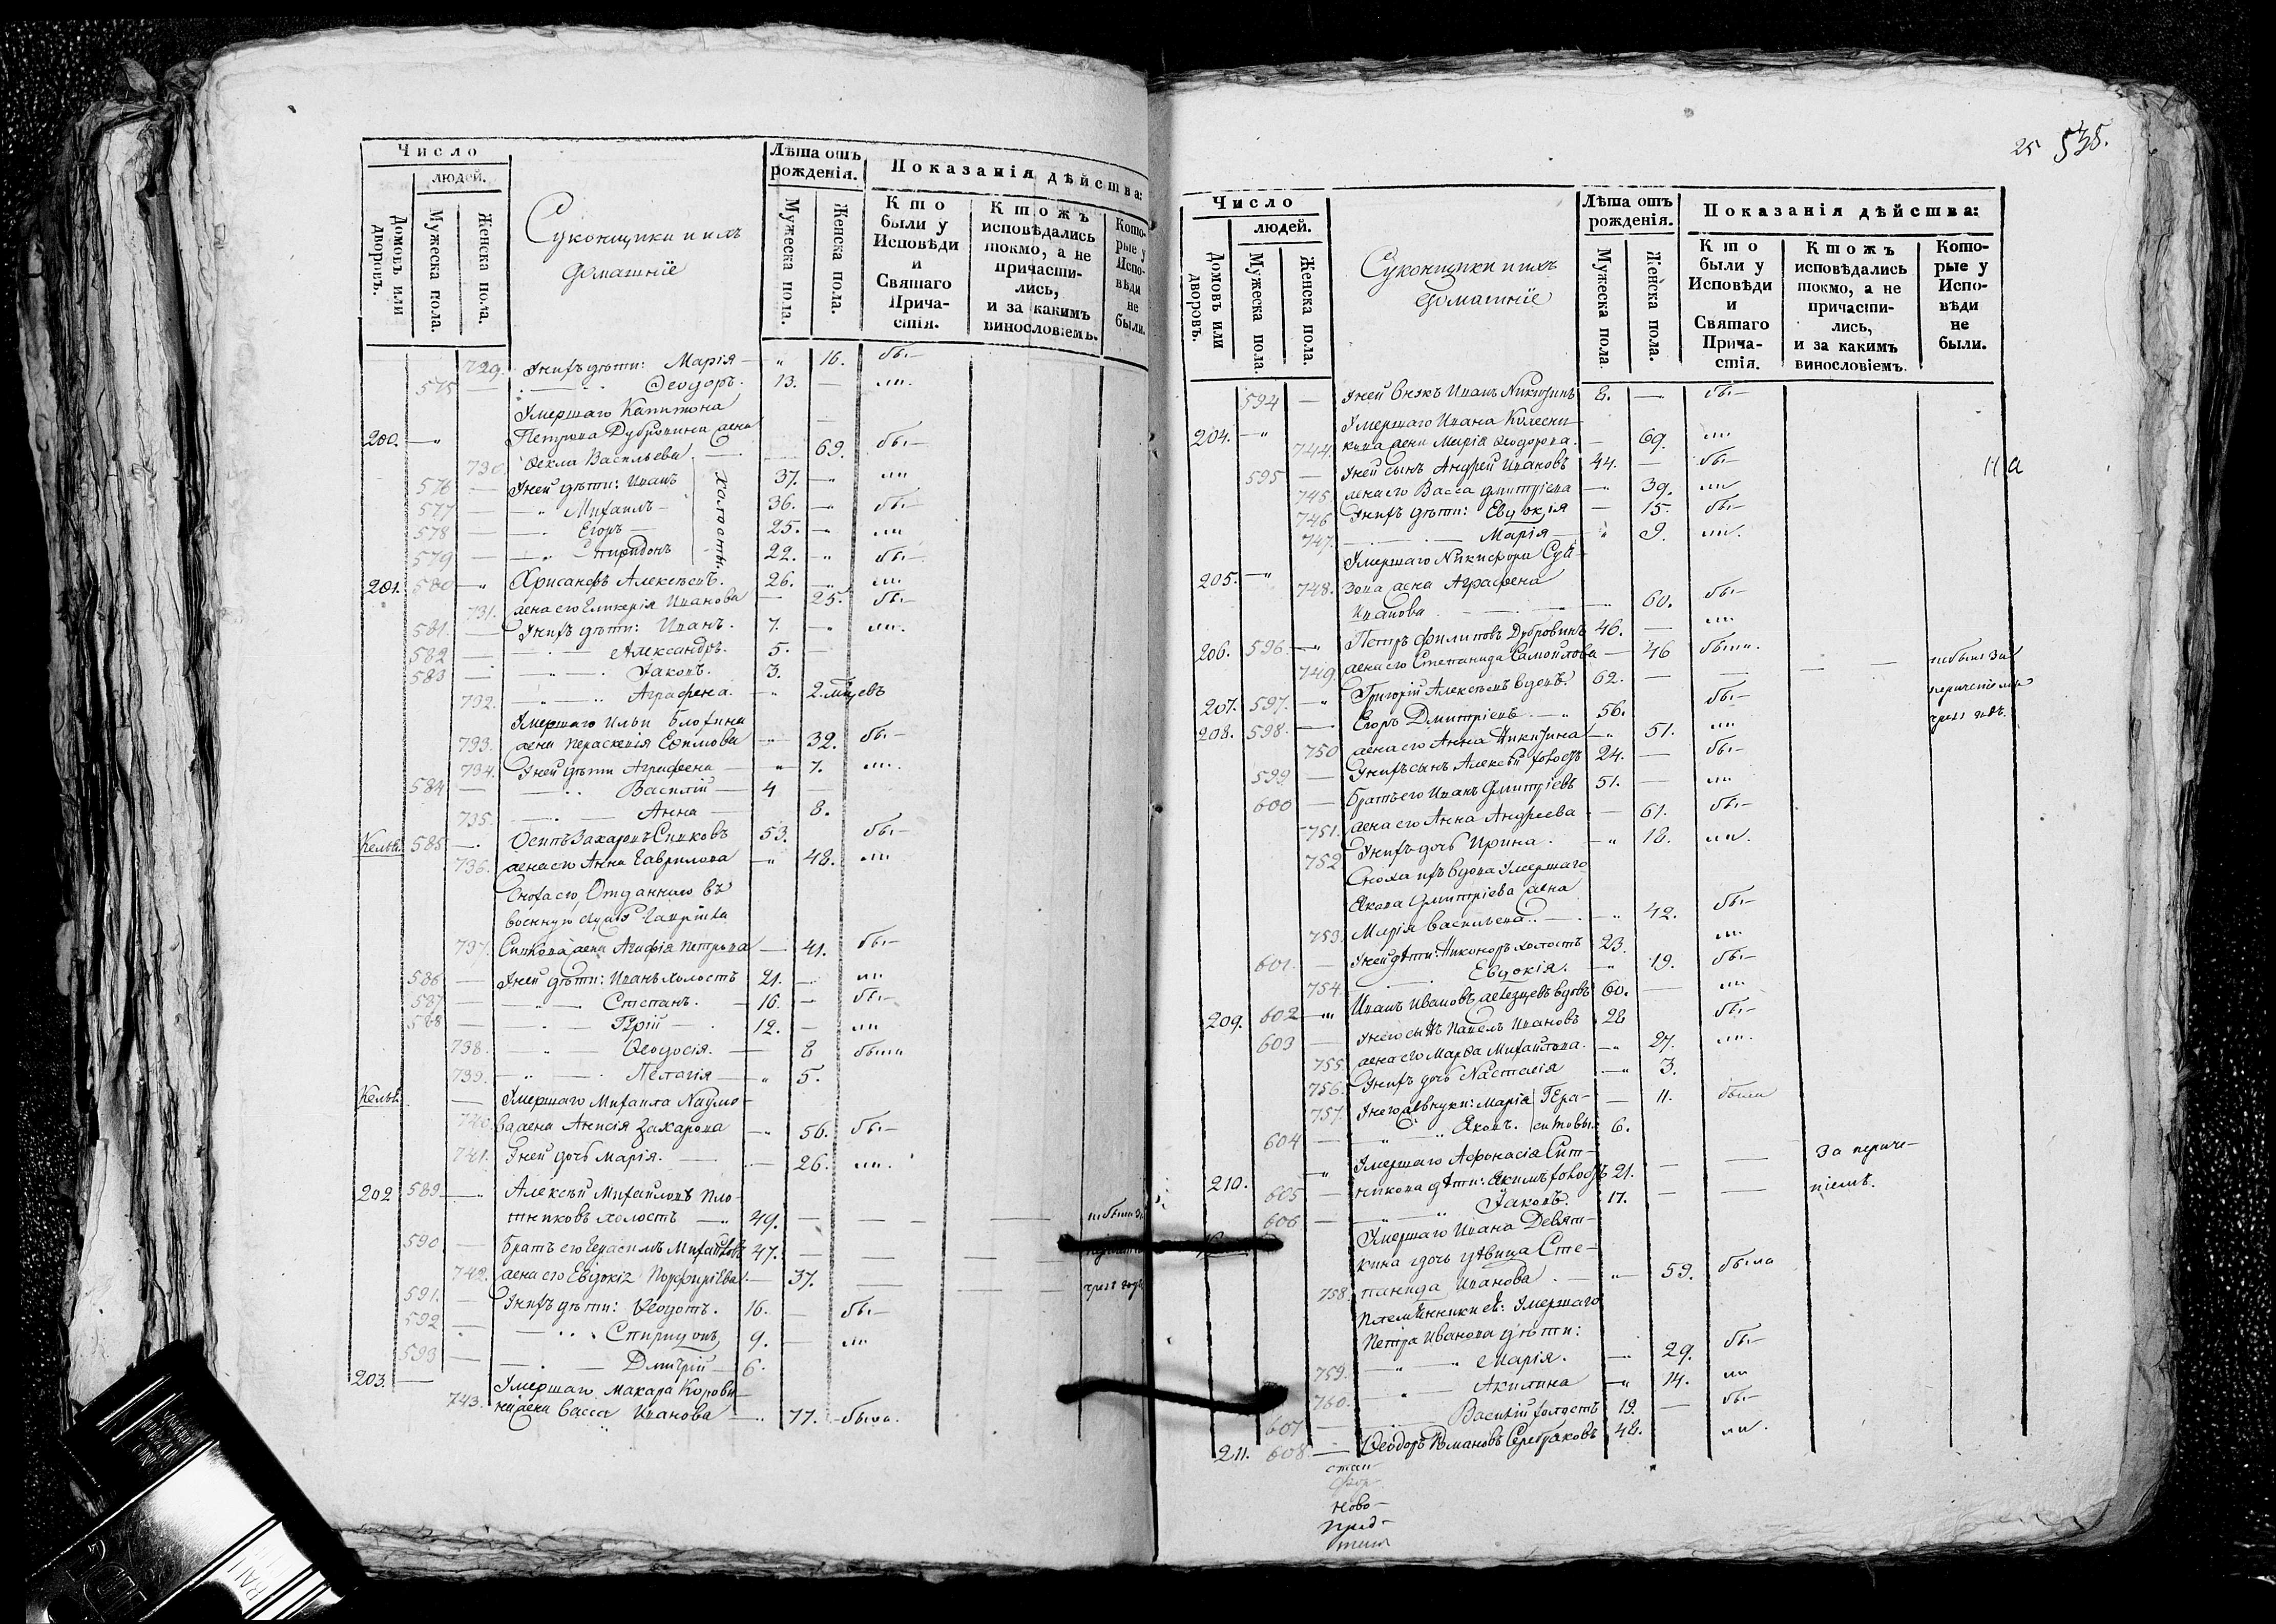 Число
людей.
Домовъ или дворовъ.
Мужеска пола.
Женска пола.
Суконщики и ихъ
домашніе
Лѣта отъ
рожденія.
Мужеска пола.
Женска пола.
Показанія дѣйства:
Кто
были у
Исповѣди
и
Святаго
Прича-
стія.
Ктожъ
исповѣдались
токмо, а не
причасти-
лись,
и за какимъ
винословіемъ.
Кото-
рые у
Испо-
вѣди
не
были.
729. У нихъ дѣти: Марія — „ 16. бы-
575 — Ѳеодоръ. 13. — ли.
Умершаго Капитона
200. — „ Петрова Дубровина жена
730 Ѳекла Васильева — 69. бы-
576 — У ней дѣти: Иванъ 37. — „ ли
577 — „ Михаилъ — 36. — „ бы-
578 — Егоръ — 25. — „ ли
579 — „ Спиридонъ 22. — „ бы-
холосты.
201. 580 — „ Хрисанфъ Алексѣевъ. 26. — „ ли
731. жена его Гликерія Иванова — 25. бы-
581. — У нихъ дѣти: Иванъ. 7. — „ ли.
582 — Александръ. 5. —
583 — Іаковъ. 3.
732. — Аграфена. — „ 2. мѣсевъ
Умершаго Ильи
733. жена Параскевія Ефимова — „ 32. бы-
734. У ней дѣти Аграфена — „ 7. ли.
584 — Василій — 4 —
735. — Анна — 8.
Кельи. 585 — Осипъ Захаровъ Ситковъ 53. бы-
736. жена его Анна Гаврилова — „ 48. ли
Сноха его, Отданнаго въ
военную службу Гаврила
737. Ситкова жена Агафія Петрова — 41. бы-
586 — У ней дѣти: Иванъ холостъ 21. — ли
587 — Степанъ. — 16. — бы-
588 — Гурій — 12. — ли
738. — „ Ѳеодосія. — 8 были
739. — „ Пелагія — „ 5.
Кельи. — Умершаго Михаила Наумо-
740. ва жена Анисія Захарова — „ 56. бы-
741. У ней дочь Марія. — 26. ли.
202 589 — „ Алексѣй Михайловъ Пло-
тниковъ холостъ — „ 49. — — — не были за
590 — братъ его Герасимъ Михайловъ 47. — — —
742. жена его Евдокія Порфирьева — 37. — чрезъ годъ
591. — У нихъ дѣти: Ѳеодотъ. 16. — бы-
592 — Спиридонъ 9. — ли
593 — Дмитрій — 6.
203. — Умершаго Макара Корови-
743. на жена Васса Иванова — 77. — была.
25 535.
Число
людей.
Домовъ или дворовъ.
Мужеска пола.
Женска пола.
Суконщики и ихъ
домашніе
Лѣта отъ
рожденія.
Мужеска пола
Женска пола.
Показанія дѣйства:
Кто
были у
Исповѣди
и
Святаго
Прича-
стія.
Ктожъ
исповѣдались
токмо, а не
причасти-
лись,
и за какимъ
винословіемъ.
Кото-
рые у
Испо-
вѣди
не
были.
594 — У ней внукъ Иванъ Никитинъ 8. — бы-
204. — „ Умершаго Ивана Колесни-
744 кова жена Марія Ѳеодорова. — 69. ли
595 — У ней сынъ Андрей Ивановъ 44. — бы-
745. жена его Васса Дмитріева — „ 39. ли
746 У нихъ дѣти: Евдокія — 15. бы-
747. — Марія — „ 9. ли.
205. — „ Умершаго Никифора Суй-
748. зова жена Аграфена
Иванова — 60. бы-
206. 596. — „ Петръ Филиповъ Дубровинъ 46. — ли
749. жена его Степанида Самойлова — 46 были.
207. 597. — „ Григорій Алексѣевъ вдовъ. 62. — — не былъ за
208. 598. — Егоръ Дмитріевъ. — „ 56. бы-
750 жена его Анна Никитина — „ 51. ли
чрезъ годъ.
599 — У нихъ сынъ Алексѣй холостъ 24. — бы-
600 — Братъ его Иванъ Дмитріевъ 51. — ли
751. жена его Анна Андреева — 61. бы-
752 У нихъ дочь Ирина. — „ 18. ли.
Сноха ихъ вдова Умершаго
Якова Дмитріева жена
753. Марія Васильева. — „ 42. бы-
601. — У ней дѣти: Никоноръ холостъ 23. ли
754. — Евдокія. — „ 19. бы-
209. 602 — „ Иванъ Ивановъ вдовъ 60. — ли
603 — У него сынъ Павелъ Ивановъ 28 бы-
755. жена его Марѳа Михайлова. — „ 27. ли.
756. У нихъ дочь Настасія — „ 3.
757. У него внуки: Марія Гера- — 11. были
604 — „ Яковъ. симовы 6.
210. „ Умершаго Афонасія Сит-
605 — никова дѣти: Якимъ холостъ 21. — — За нераче-
606 — „ Іаковъ. 17. — — ніемъ.
Умершаго Ивана Девят-
кина дочь дѣвица Сте-
758. панида Иванова. — „ 59. была
Племѣнники еѣ: Умершаго
Петра Иванова дѣти:
759. — „ Марія. — 29. бы-
760. — „ Акилина — „ 14. ли
607 — Василій холостъ 19. — бы-
211. 608. — Ѳеодоръ Романовъ Серебряковъ 48. ли.
На
ново-
пред-